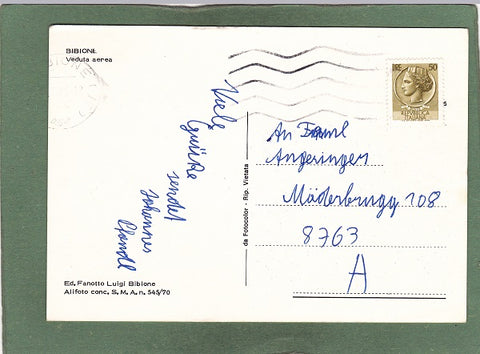 BIBIONE
Veduta aerea
Viele
Grüße
sendet
Johannes
Pfandl
Ed. Fanotto Luigi Bibione
Alifoto conc. S. M. A. n. 545/70
da Fotocolor - Rip. Vietata
50
REPUBBLICA
ITALIANA
An Faml
Angeringer
Möderbrugg 108
8763
A